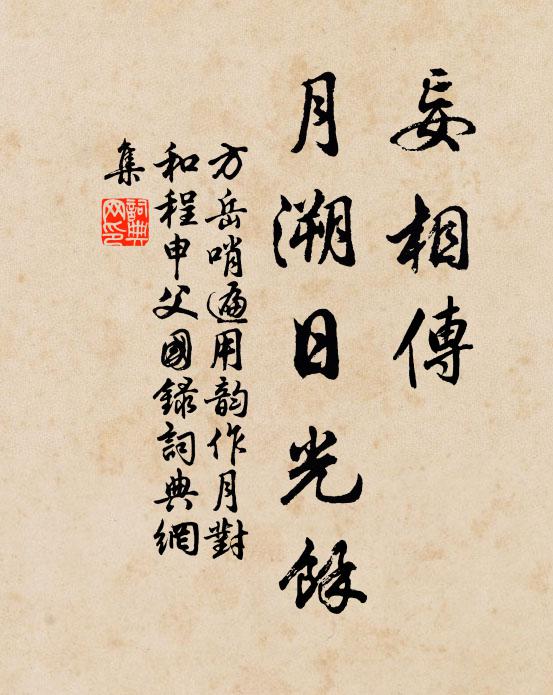 妄相傳
月溯日光餘
方岳哨遍用韵作月對
和程申父國錄詞典網
集
詞典网印